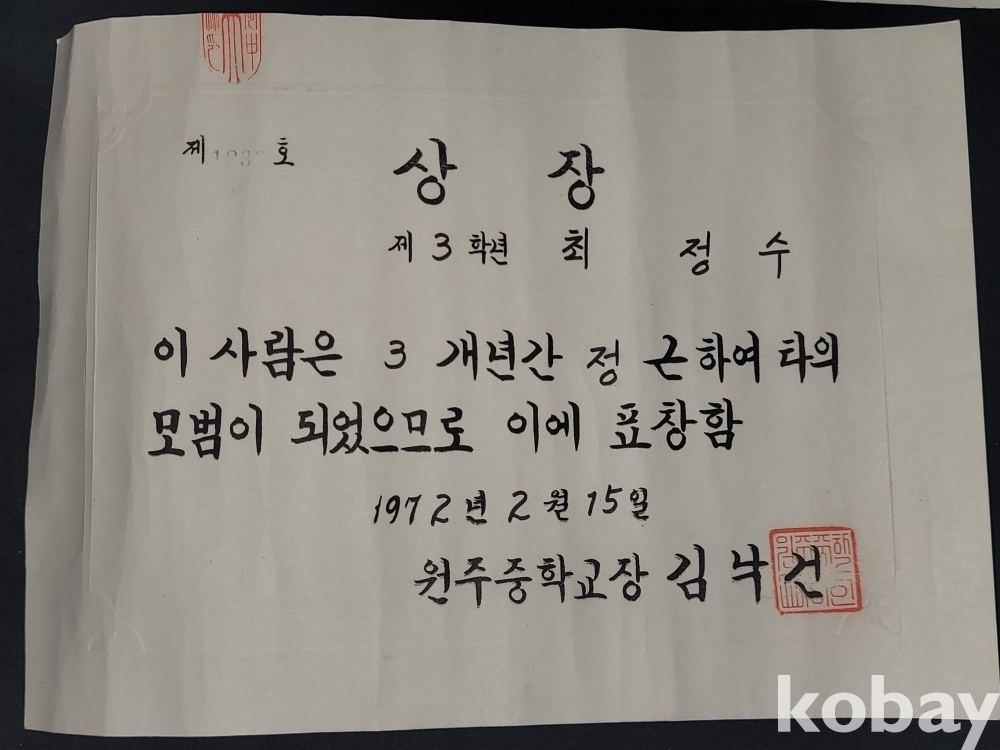 제 호
상 장
제 3 학년 최 정 수
이 사람은 3 개년간 정 근하여 타의
모범이 되었으므로 이에 표창함
1972년 2월 15일
원주중학교장 김낙건
kobay